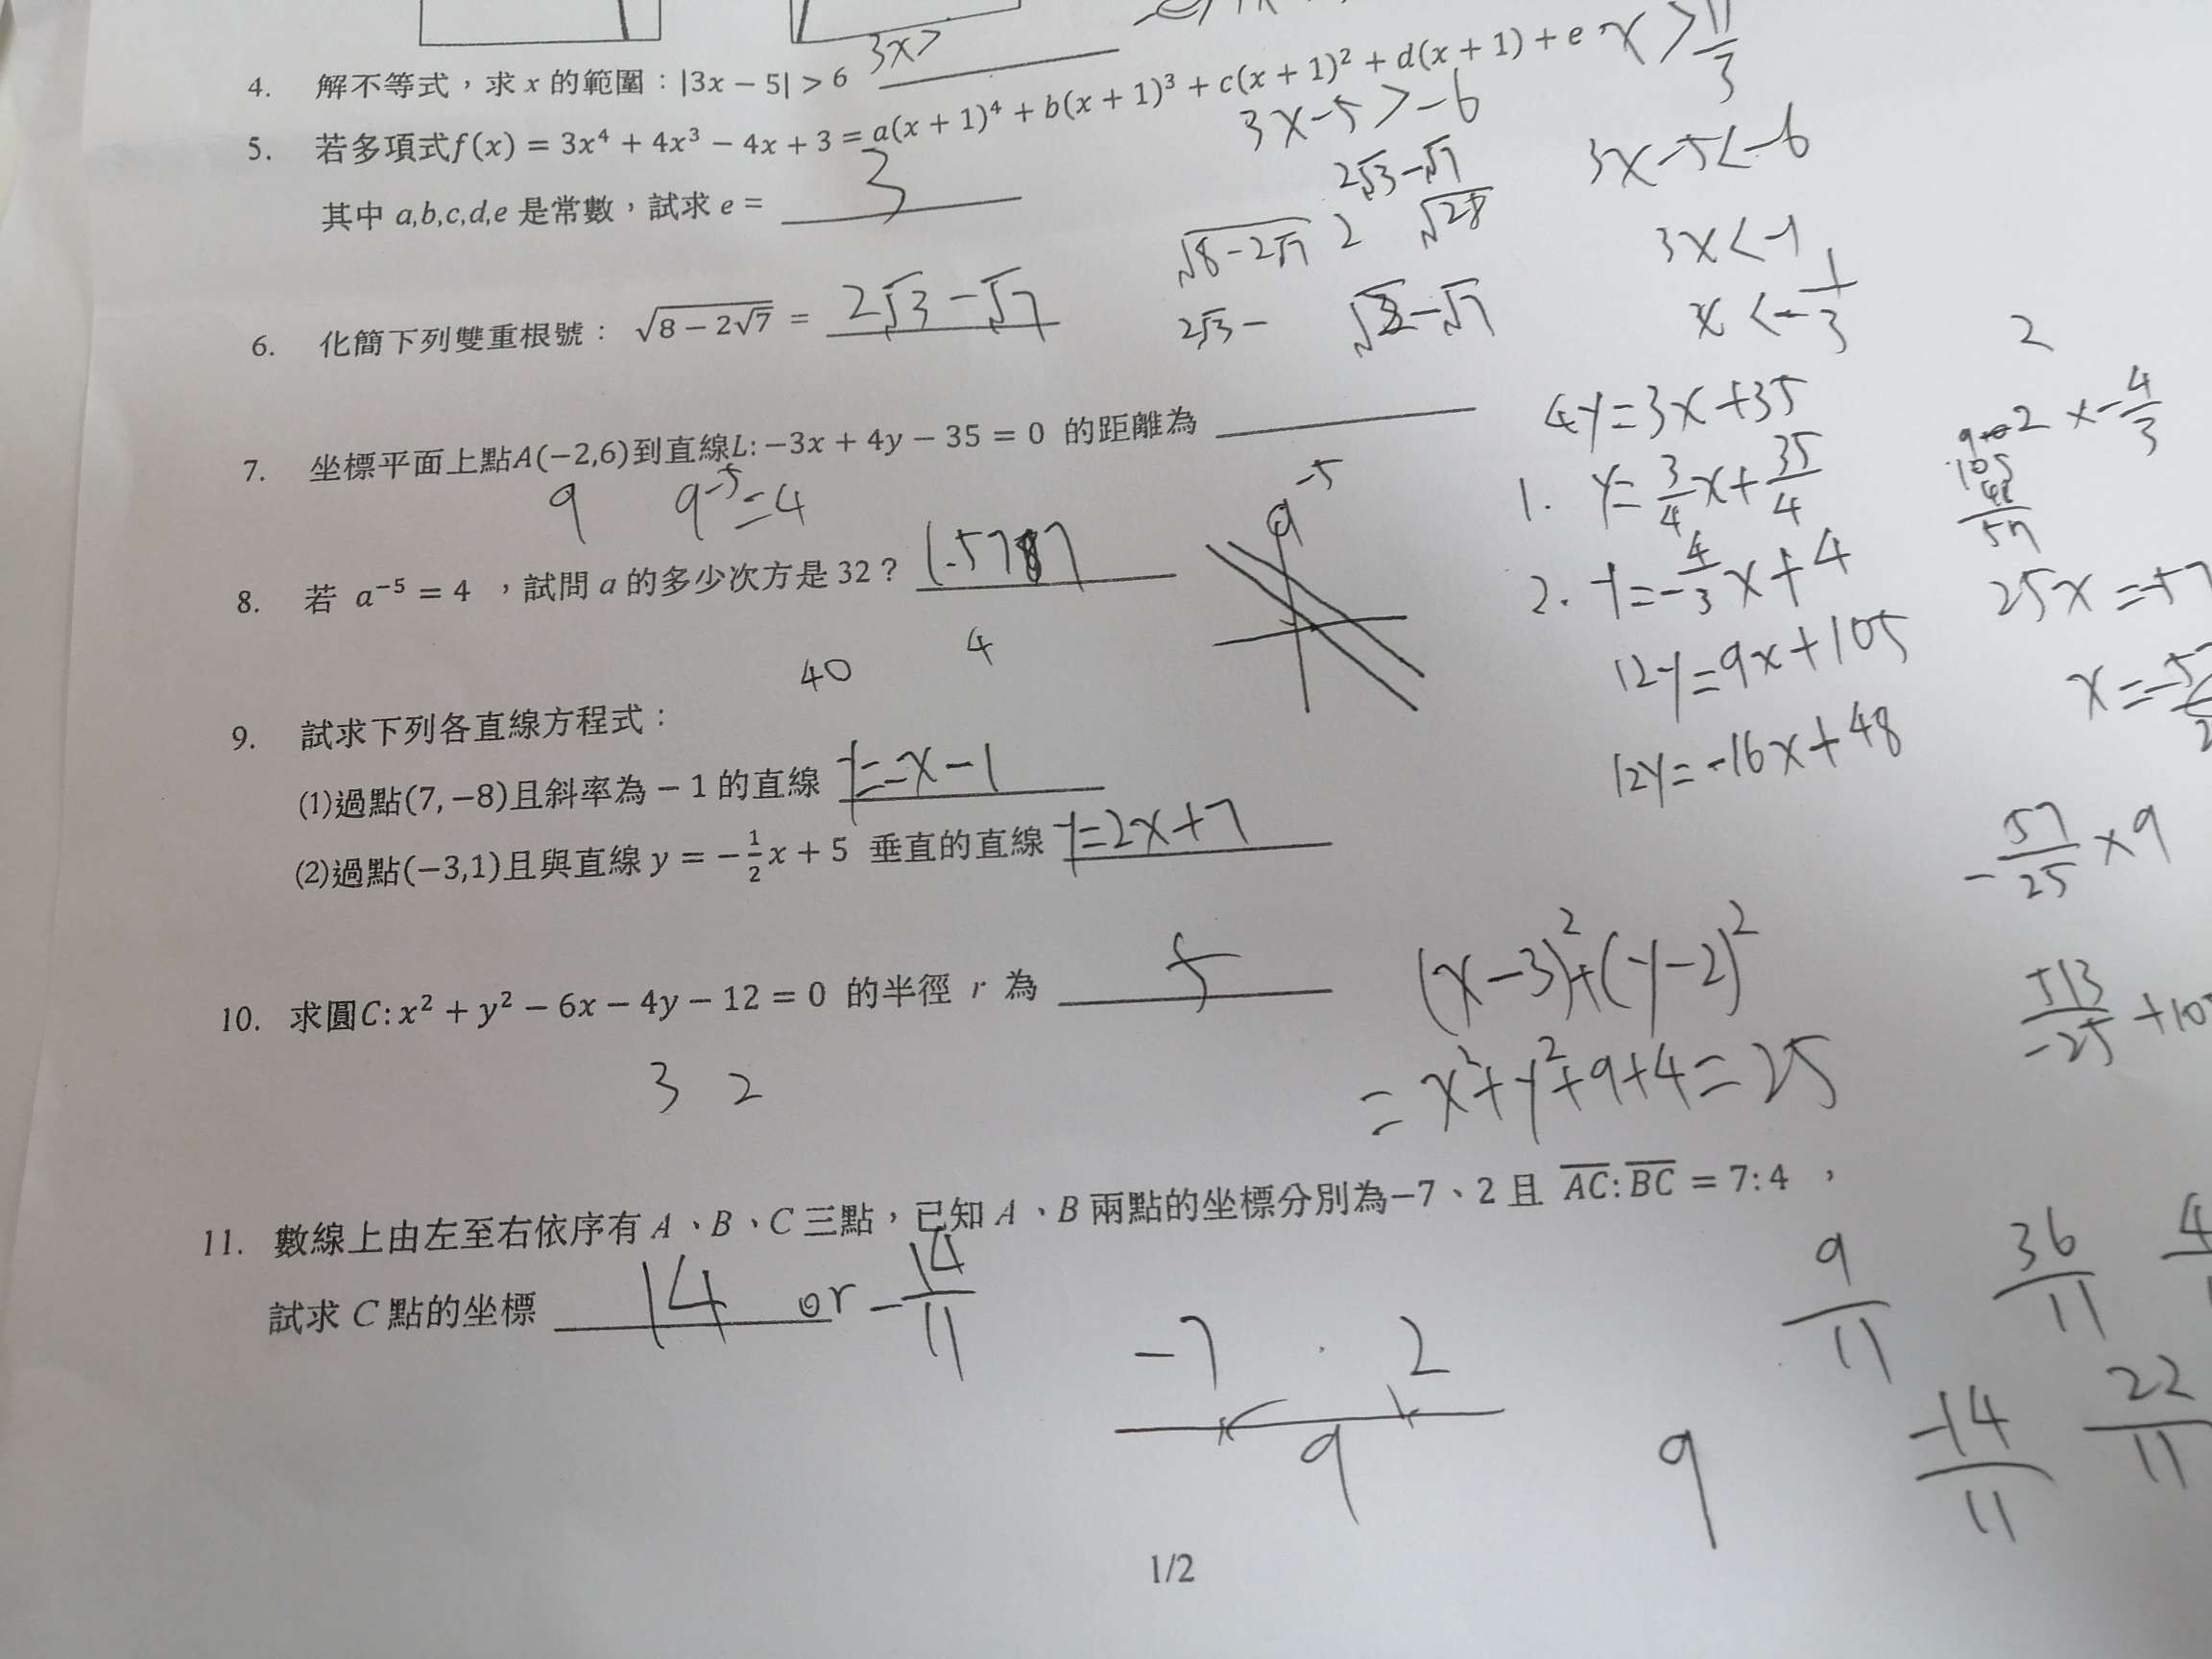 4. 解不等式，求 x 的範圍：|3x − 5| > 6
3x>
x > 11/3
5. 若多項式f(x) = 3x⁴ + 4x³ − 4x + 3 = a(x + 1)⁴ + b(x + 1)³ + c(x + 1)² + d(x + 1) + e
其中 a,b,c,d,e 是常數，試求 e = 3
3x-5>-6
3x-5<-6
3x<-1
x<-1/3
2√3-√7
√8-2√7 2 √28
6. 化簡下列雙重根號： √(8 − 2√7) = 2√3-√7
2√3-
7. 坐標平面上點A(−2,6)到直線L: −3x + 4y − 35 = 0 的距離為
9 9-5=4
-5
4y=3x+35
1. y=3/4x+35/4
2. y=-4/3x+4
12y=9x+105
12y=-16x+48
2
2 x-4/3
105
48
57
8. 若 a⁻⁵ = 4 ，試問 a 的多少次方是 32？
40 4
9. 試求下列各直線方程式：
(1)過點(7, −8)且斜率為 − 1 的直線 y=-x-1
(2)過點(−3,1)且與直線 y = −1/2x + 5 垂直的直線 y=2x+7
-57/25 x9
10. 求圓C: x² + y² − 6x − 4y − 12 = 0 的半徑 r 為 5
3 2
(x-3)²+(y-2)²
=x²+y²+9+4=25
11. 數線上由左至右依序有 A、B、C 三點，已知 A、B 兩點的坐標分別為−7、2 且 AC:BC = 7:4 ，
試求 C 點的坐標 14 or -14/11
-7 2
9
9/11 36/11
9 -14/11 22/11
1/2